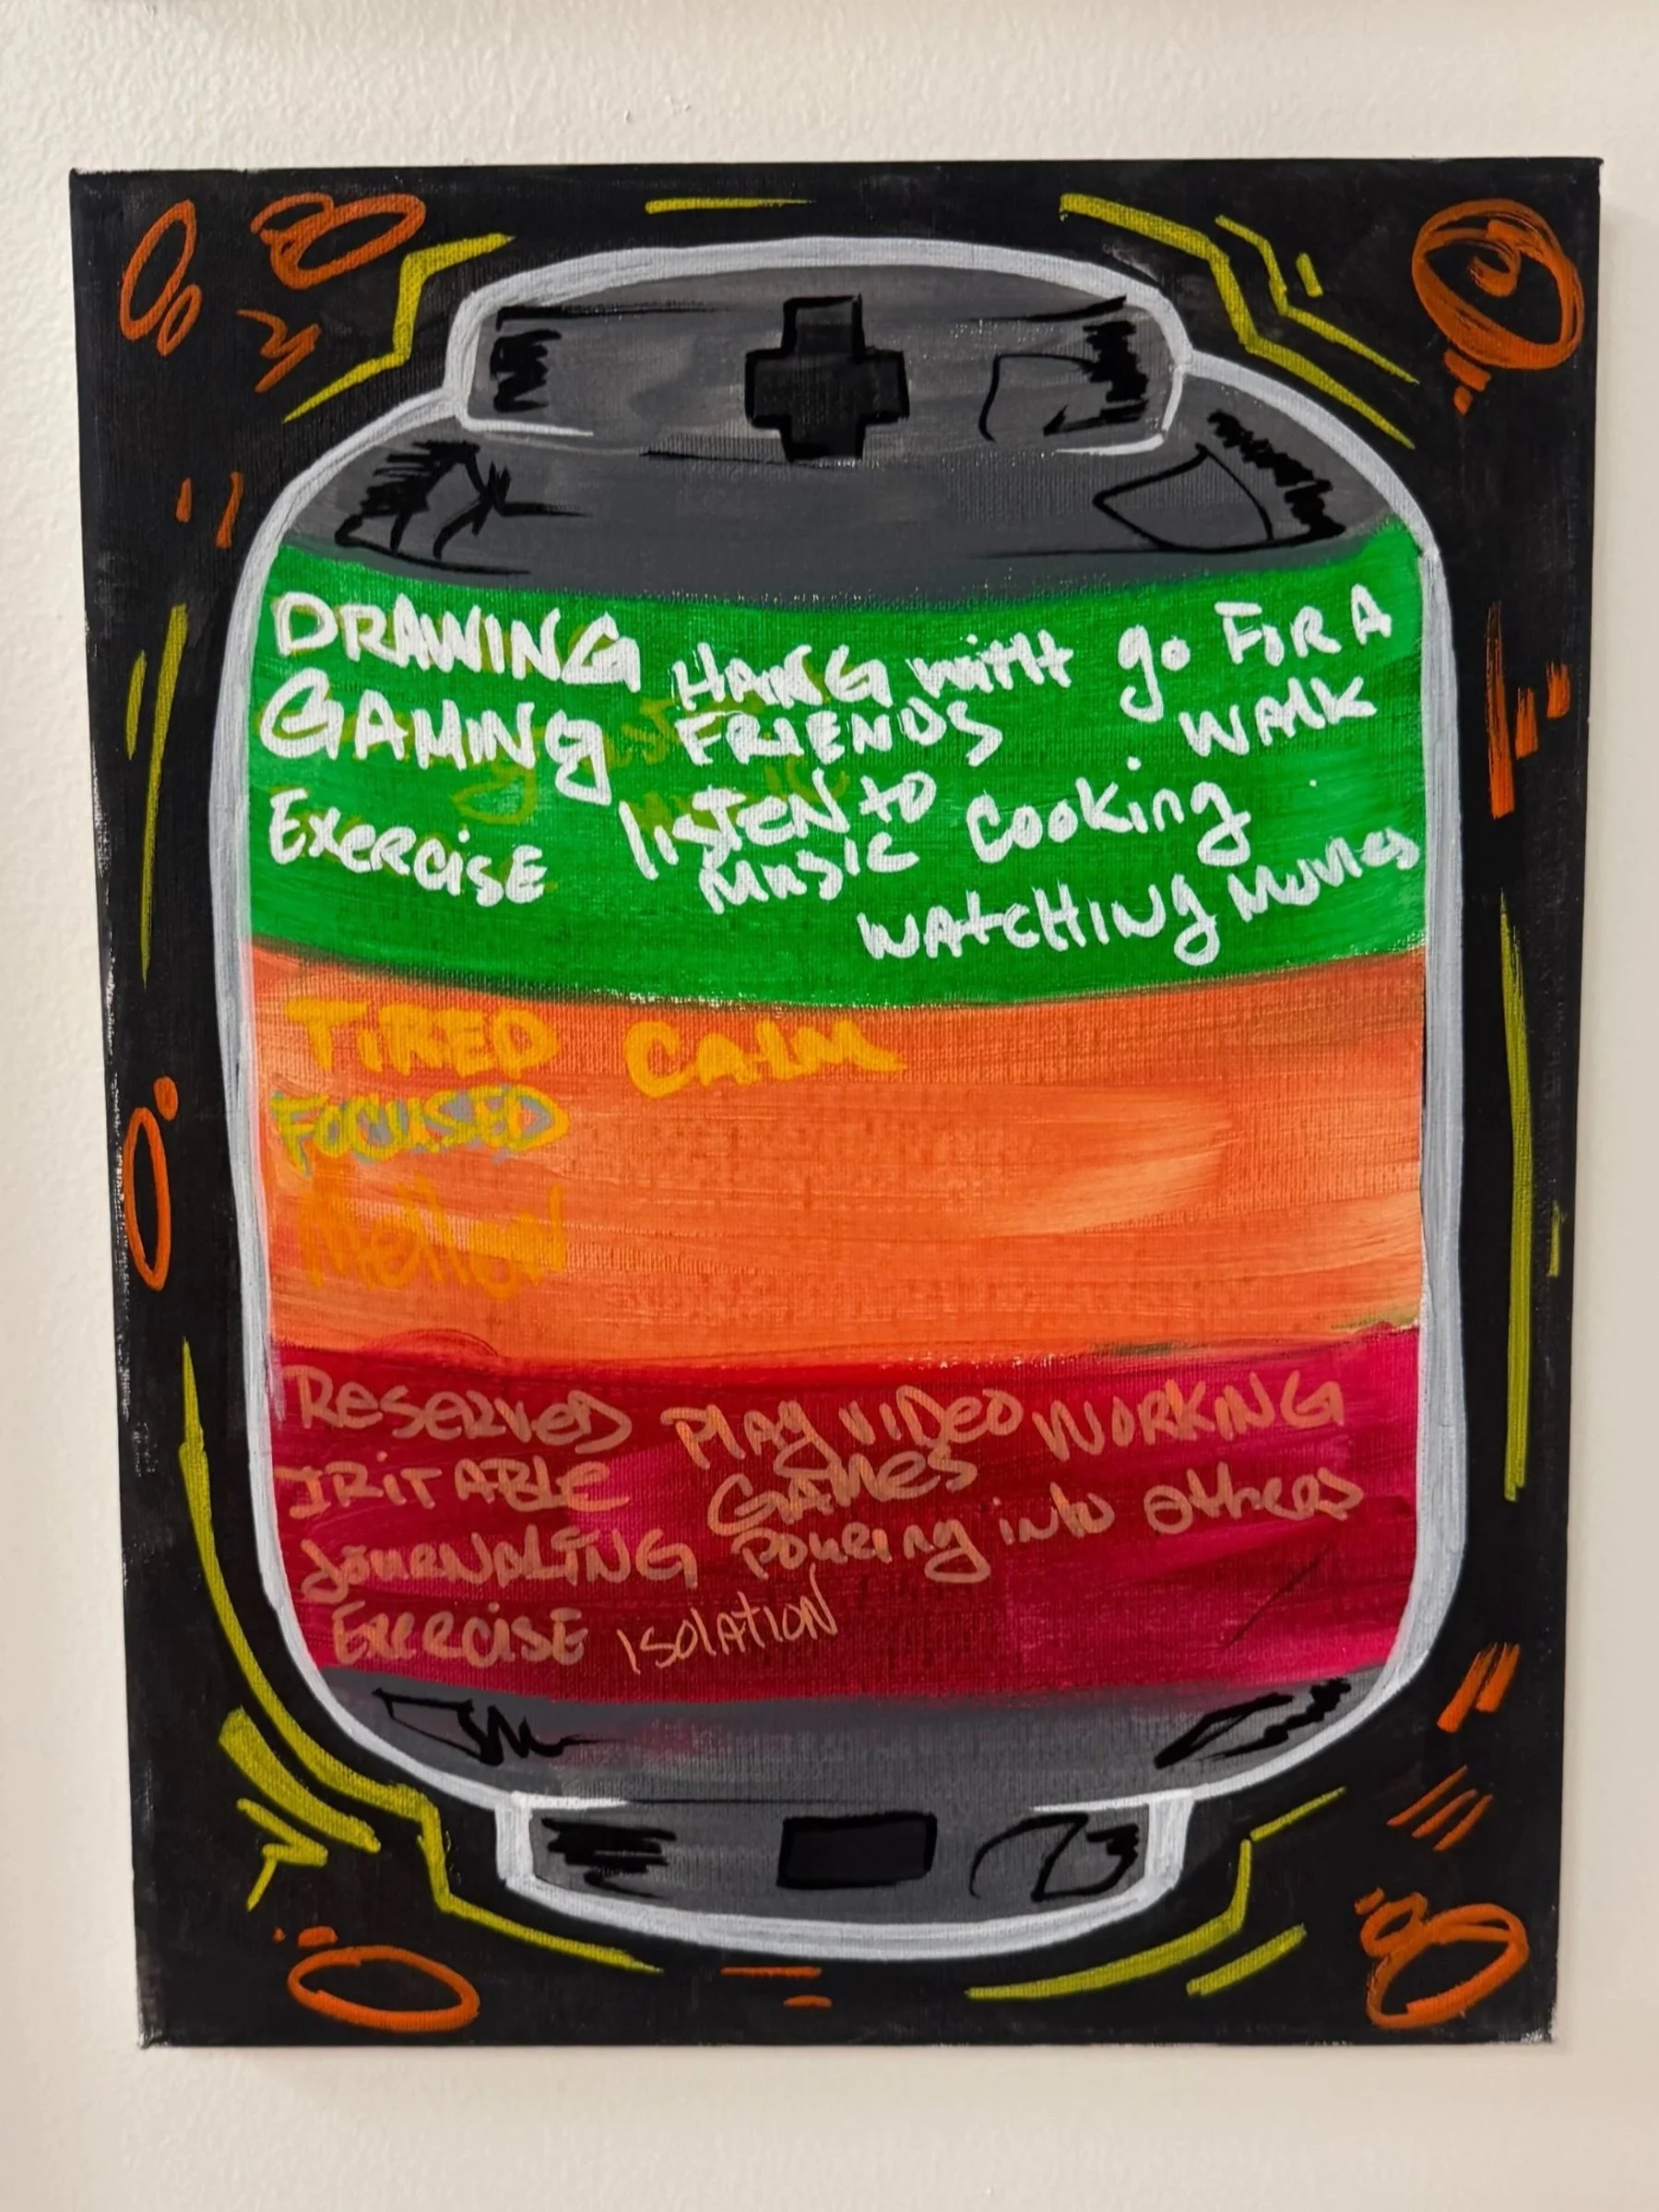 DRAWING HANG with go FOR A
GAMING FRIENDS WALK
Exercise listen to Cooking
Music
WATCHING Movies
TIRED CALM
FOCUSED
Mellow
Reserved Play VIDEO WORKING
IRITABLE GAMES
JOURNALING Pouring into others
Exercise ISOLATION